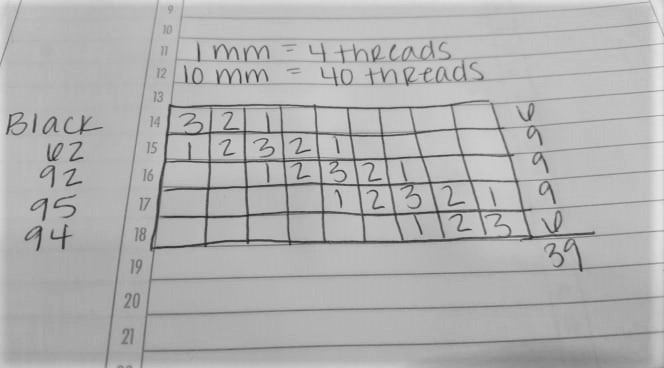 9
10
11 1mm = 4 threads
12 10 mm = 40 threads
13
Black 14 3 2 1 6
62 15 1 2 3 2 1 9
92 16 1 2 3 2 1 9
95 17 1 2 3 2 1 9
94 18 1 2 3 6
19 39
20
21